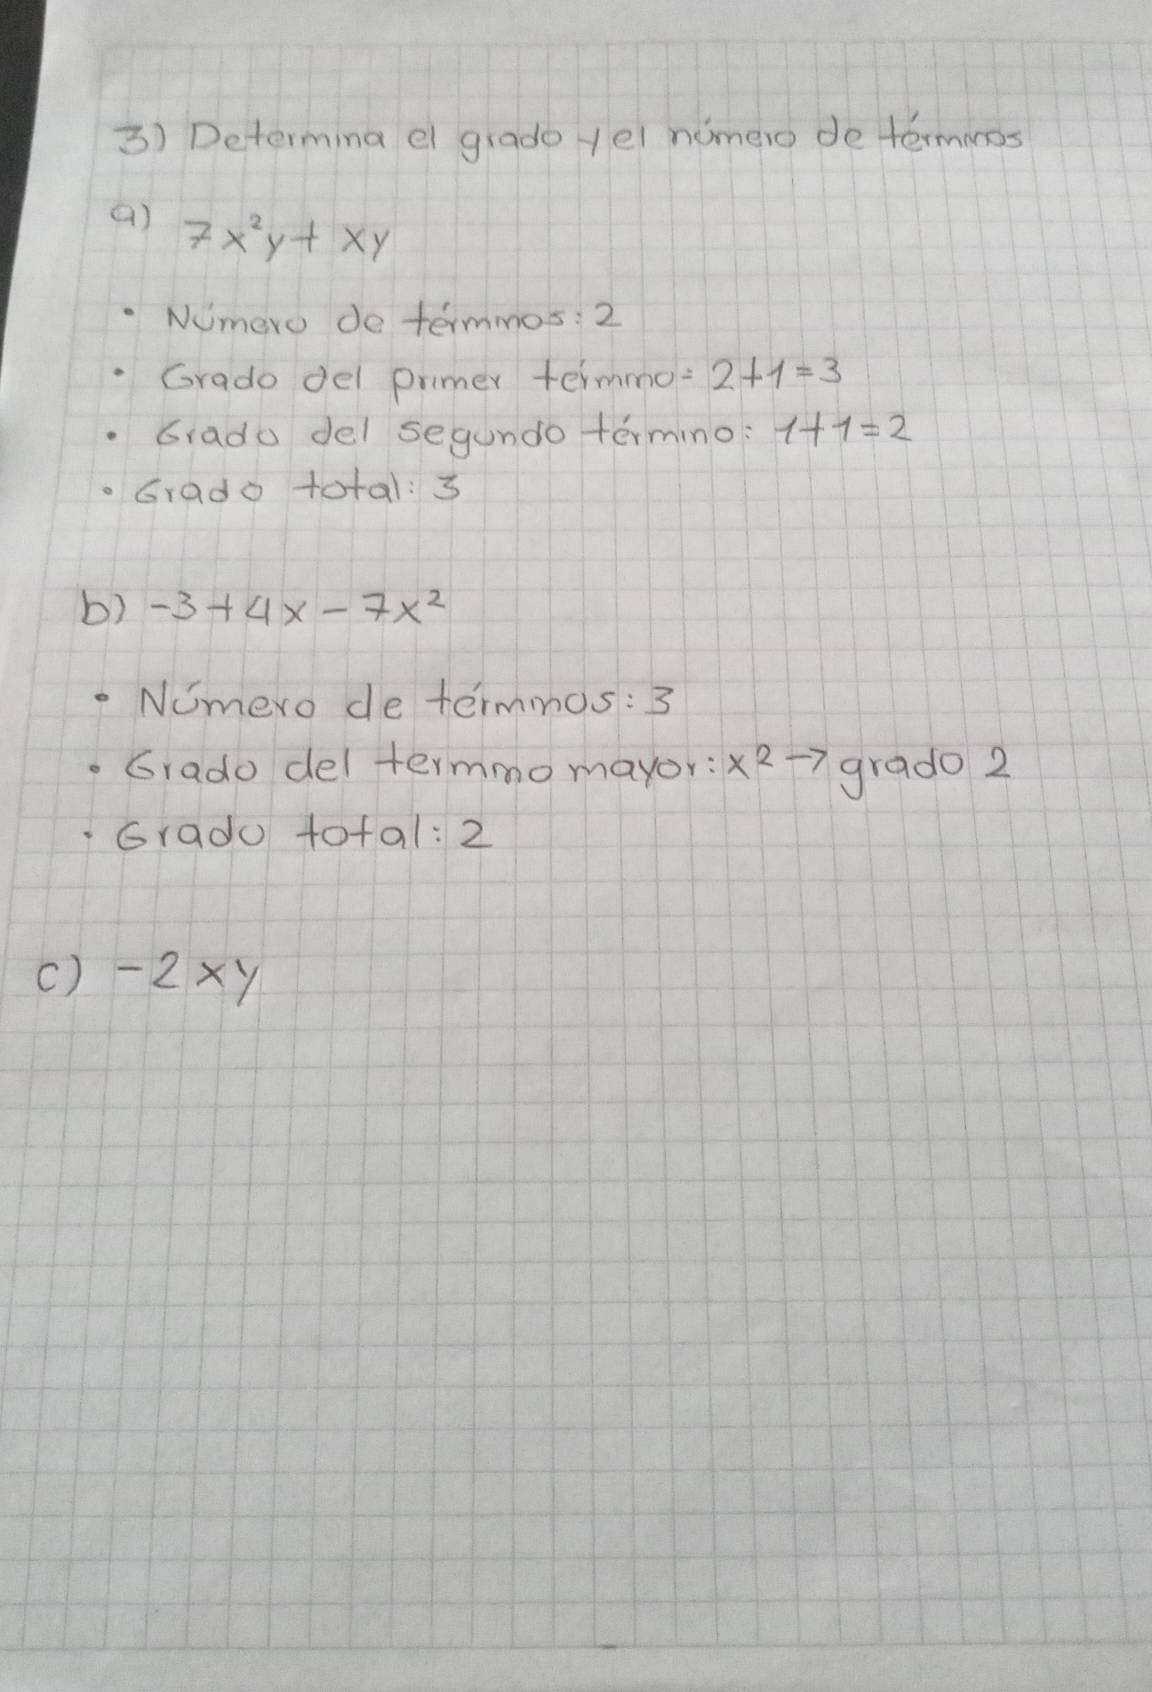 3) Determina el grado y el número de términos
a) 7x²y + xy
• Número de términos: 2
• Grado del primer término: 2+1=3
• Grado del segundo término: 1+1=2
• Grado total: 3
b) -3+4x-7x²
• Número de términos: 3
• Grado del termino mayor: x² → grado 2
• Grado total: 2
c) -2xy